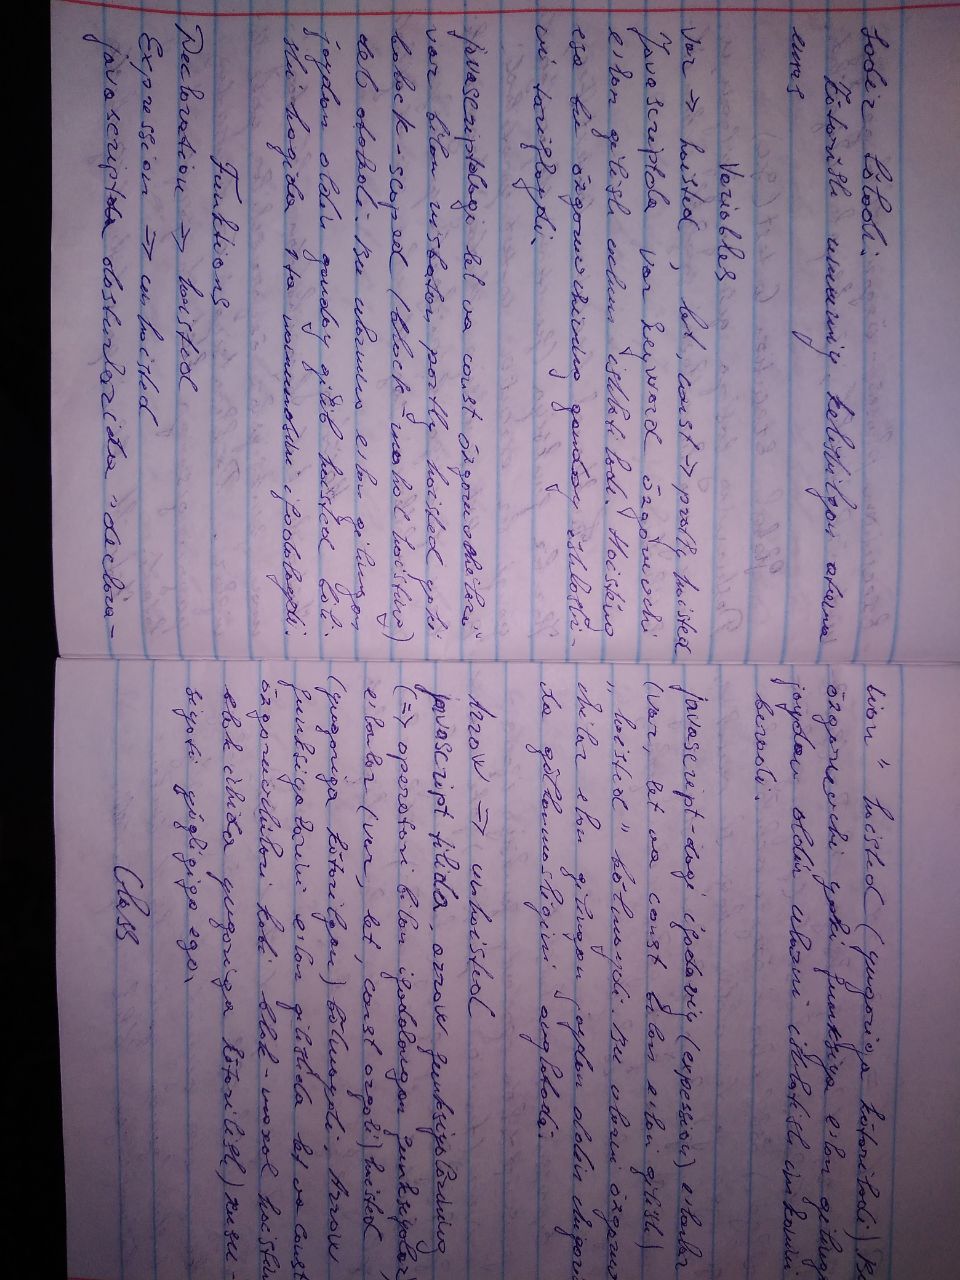 sodir bo'ladi.
Ko'tarish umumiy keltirilgan
Variables
Var → hoisted, let, const → partly hoisted
Javascriptda var keyword o'zgaruvchi
e'lon qilish uchun ishlatiladi. Hoisting
esa bu o'zgaruvchining qanday ishlashi-
ni
javascriptdagi let va const o'zgaruvchilari
var bilan nisbatan partly hoisted yoki
block-scoped (block-mahal hoisting)
deb ataladi. Bu ularning e'lon qilingan
joydan oldin qanday qilib hoisted bo'li-
shi haqida ifodalaydi.
Funktions
Declaration → hoisted
Expression → unhoisted
javascriptda dasturlarida "declara-
tion" hoisted (yuqoriga ko'tariladi)
o'zgaruvchi yoki funksiya e'lon
joydan oldin ularni ishlatish imkonini
beradi.
javascript-dagi ifodaviy (expession) e'lonlar
(var, let va const bilan e'lon qilish)
"hoisted" bo'lmaydi. Bu ularni o'zgaruv-
chilar e'lon qilingan joydan oldin
anglatadi.
Arrow → unhoisted
javascript tilida, arrow funksiyalarning
(=> operatori bilan ifodalangan funksiyalar)
e'lonlar (var, let, const orqali) hoisted
(yuqoriga ko'tarilgan) bo'lmaydi. Arrow
funksiyalarini e'lon qilishda let va const
o'zgaruvchilari kabi blok-mahal hoisting
blok ichida yuqoriga ko'tarilish)
ega.
Class